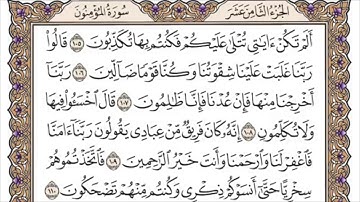 الجزء الثامن عشر
سورة المؤمنون
أَلَمْ تَكُنْ ءَايَٰتِى تُتْلَىٰ عَلَيْكُمْ فَكُنتُم بِهَا تُكَذِّبُونَ ١٠٥ قَالُوا۟
رَبَّنَا غَلَبَتْ عَلَيْنَا شِقْوَتُنَا وَكُنَّا قَوْمًا ضَآلِّينَ ١٠٦ رَبَّنَآ
أَخْرِجْنَا مِنْهَا فَإِنْ عُدْنَا فَإِنَّا ظَٰلِمُونَ ١٠٧ قَالَ ٱخْسَـُٔوا۟ فِيهَا
وَلَا تُكَلِّمُونِ ١٠٨ إِنَّهُۥ كَانَ فَرِيقٌ مِّنْ عِبَادِى يَقُولُونَ رَبَّنَآ ءَامَنَّا
فَٱغْفِرْ لَنَا وَٱرْحَمْنَا وَأَنتَ خَيْرُ ٱلرَّٰحِمِينَ ١٠٩ فَٱتَّخَذْتُمُوهُمْ
سِخْرِيًّا حَتَّىٰٓ أَنسَوْكُمْ ذِكْرِى وَكُنتُم مِّنْهُمْ تَضْحَكُونَ ١١٠